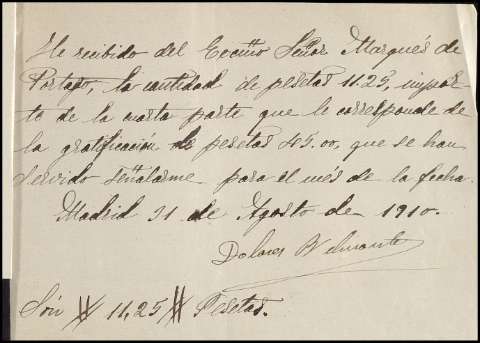 He recibido del Excmo Señor Marqués de
Portago, la cantidad de pesetas 11.25, impor-
te de la cuarta parte que le corresponde de
la gratificacion de pesetas 45.00, que se han
servido señalarme para el mes de la fecha.
Madrid 31 de Agosto de 1910.
Dolores Belmonte
Són # 11,25 # Pesetas.